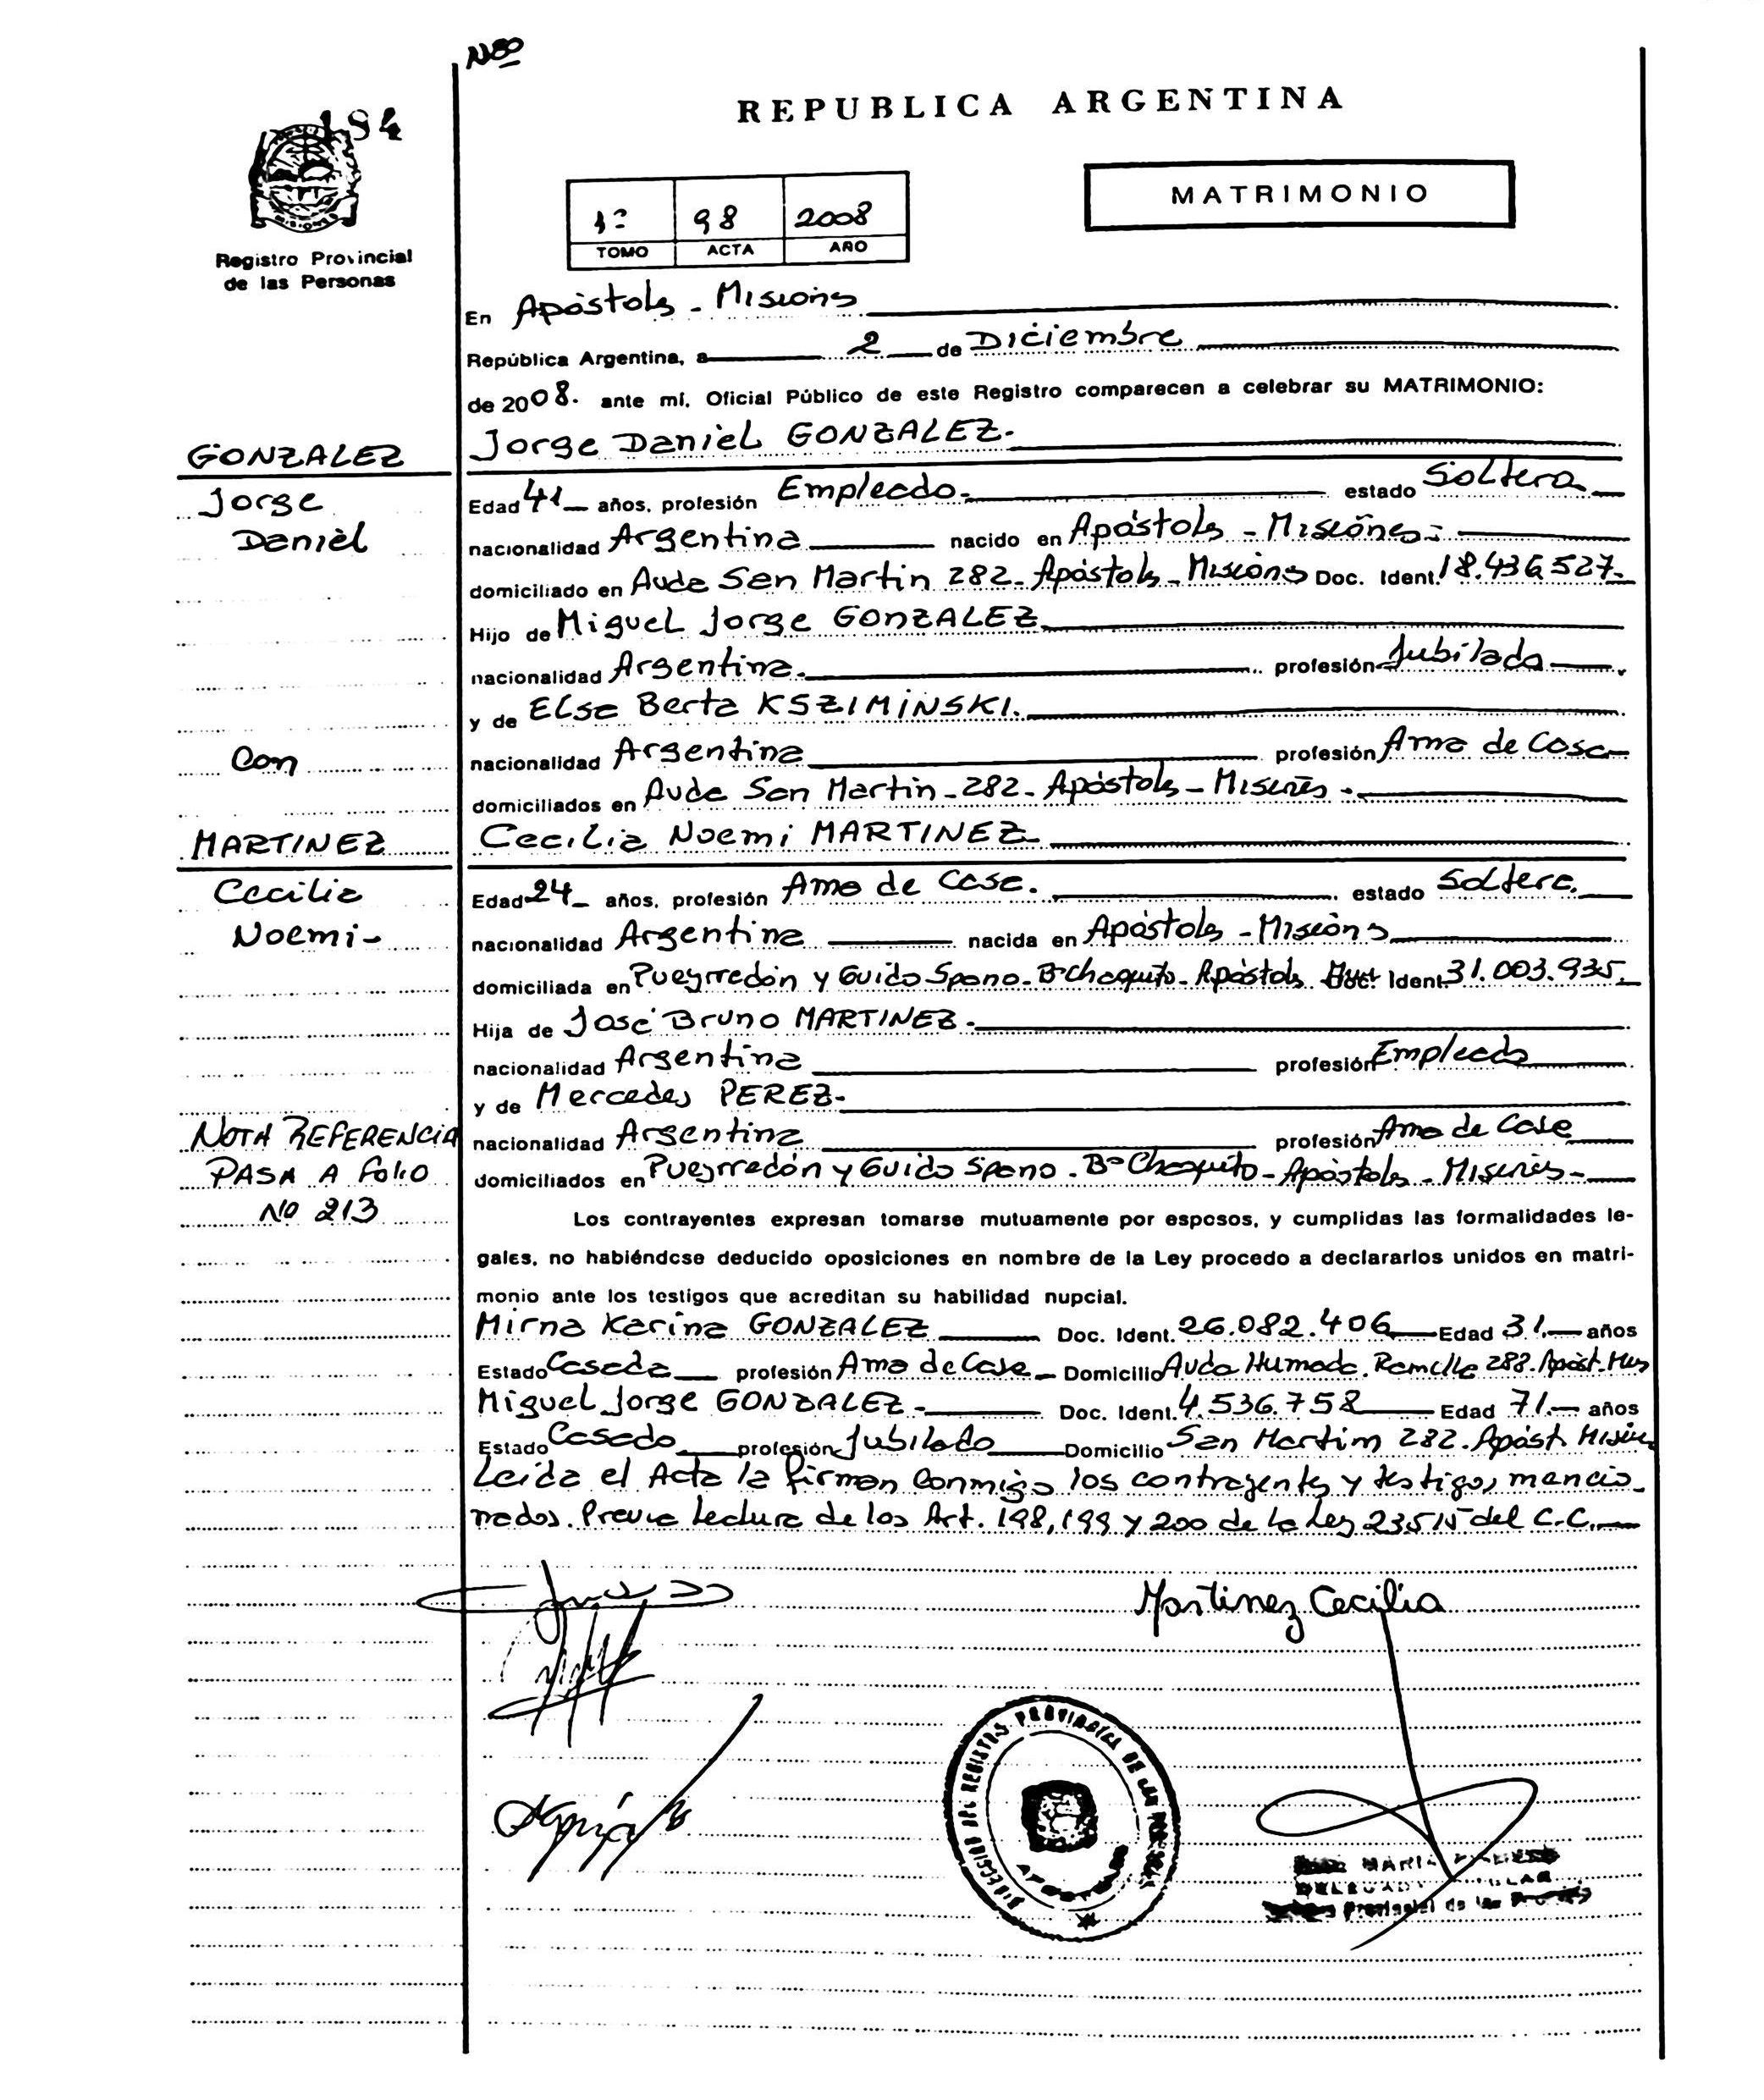 Nº
184
REPUBLICA ARGENTINA
MATRIMONIO
1º 98 2008
TOMO ACTA AÑO
Registro Provincial
de las Personas
En Apóstoles - Misiones
República Argentina, a 2 de Diciembre
de 2008. ante mí, Oficial Público de este Registro comparecen a celebrar su MATRIMONIO:
GONZALEZ
Jorge Daniel GONZALEZ.
Jorge
Daniel
Edad 41 años, profesión Empleado. estado Soltero
nacionalidad Argentina nacido en Apóstoles - Misiones.
domiciliado en Avda San Martin 282 - Apóstoles - Misiones Doc. Ident. 18.436.527.
Hijo de Miguel Jorge GONZALEZ
nacionalidad Argentina. profesión Jubilado
y de Elsa Berta KSZIMINSKI.
Con
nacionalidad Argentina profesión Ama de Casa
domiciliados en Avda San Martin - 282 - Apóstoles - Misiones.
MARTINEZ
Cecilia Noemi MARTINEZ
Cecilia
Noemi-
Edad 24 años, profesión Ama de Casa. estado Soltera.
nacionalidad Argentina nacida en Apóstoles - Misiones
domiciliada en Pueyrredón y Guido Spano - Bº Chaquito - Apóstoles Doc. Ident. 31.003.935.
Hija de José Bruno MARTINEZ.
nacionalidad Argentina profesión Empleado
y de Mercedes PEREZ-
NOTA REFERENCIA
PASA A Folio
No 213
nacionalidad Argentina profesión Ama de Casa
domiciliados en Pueyrredón y Guido Spano - Bº Chaquito - Apóstoles - Misiones -
Los contrayentes expresan tomarse mutuamente por esposos, y cumplidas las formalidades le-
gales, no habiéndose deducido oposiciones en nombre de la Ley procedo a declararlos unidos en matri-
monio ante los testigos que acreditan su habilidad nupcial.
Mirna Karina GONZALEZ Doc. Ident. 26.082.406 Edad 31. años
Estado Casada profesión Ama de Casa Domicilio Avda Humada. 288. Apóst. Mis
Miguel Jorge GONZALEZ - Doc. Ident. 4.536.758 Edad 71. años
Estado Casado profesión Jubilado Domicilio San Martin 282. Apóst. Misiones
Leída el Acta la firman conmigo los contrayentes y testigos mencio-
nados. Previa Lectura de los Art. 198, 199 y 200 de la Ley 23515 del C.C.
Martinez Cecilia
DIRECCION DEL REGISTRO PROVINCIAL DE LAS PERSONAS
APOSTOLES
MARIA
DELEGADA TITULAR
Provincial de las